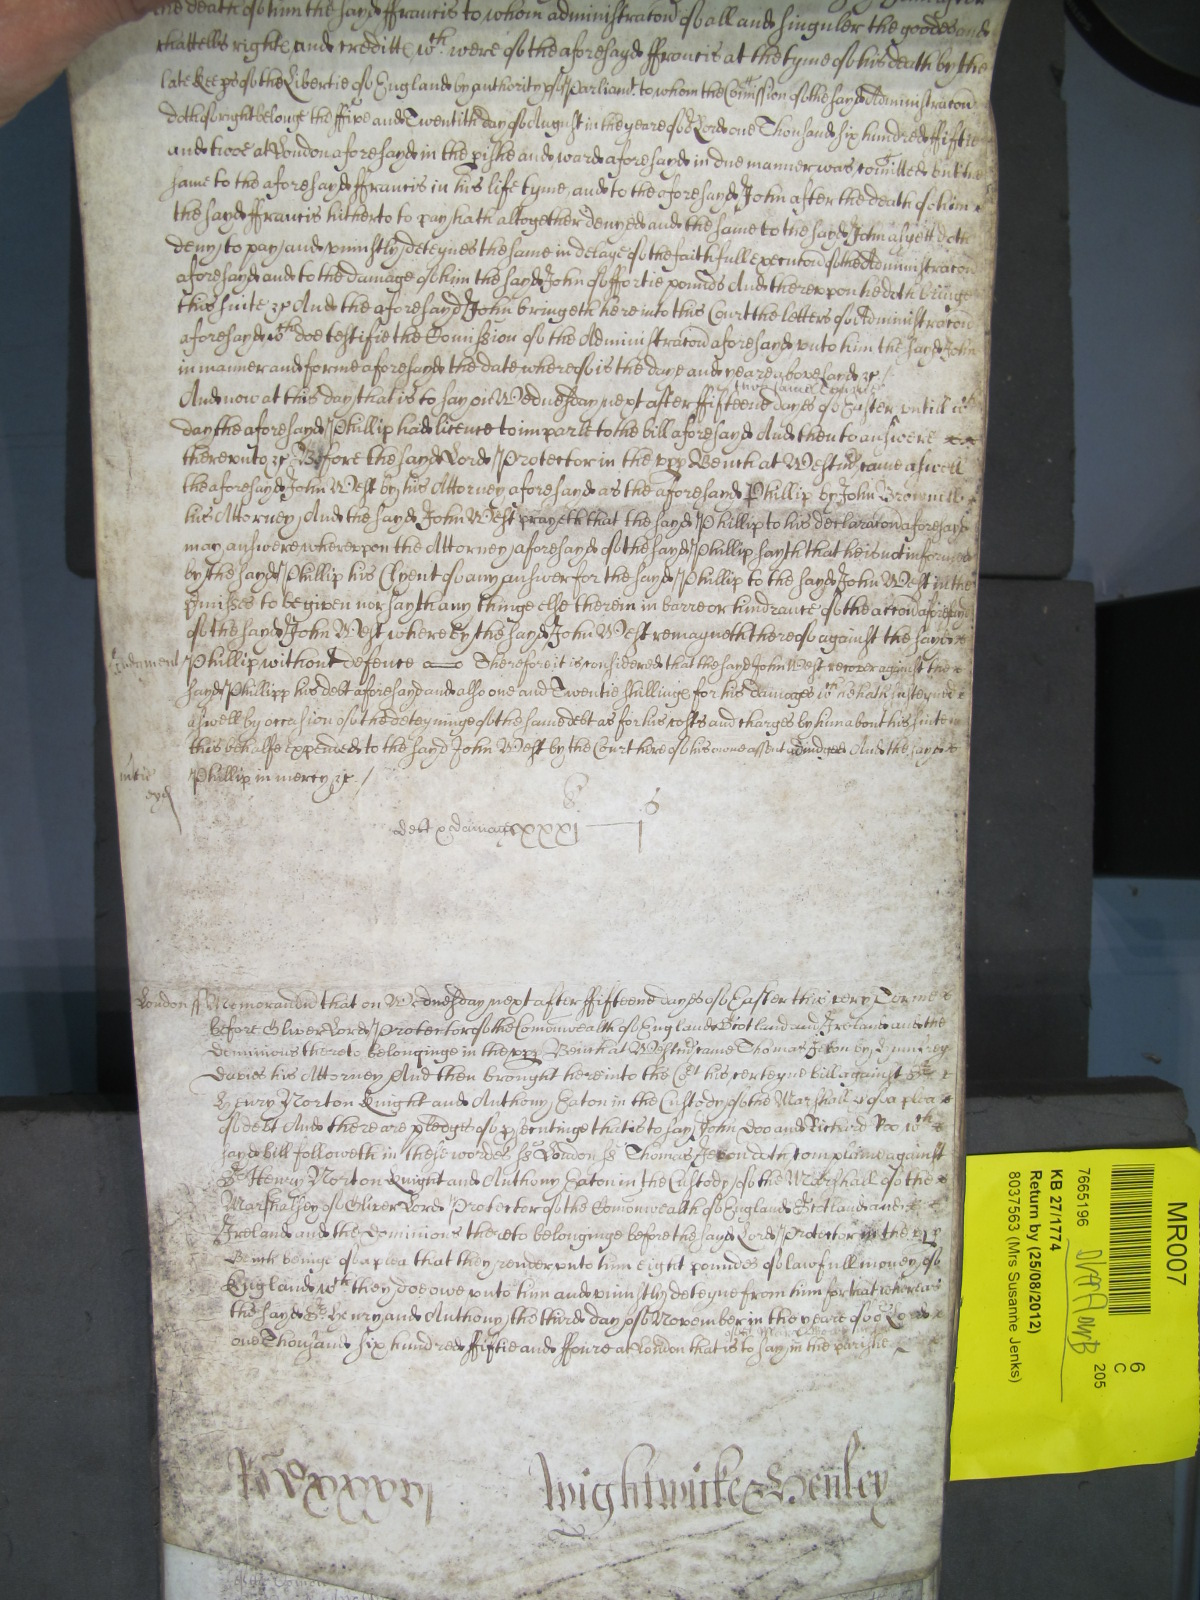 the death of him the sayd ffrancis to whom administracon of all and singuler the goodes and
chattells rightes and creditts wch. were of the aforesayd ffrancis at the tyme of his death by the
late Keeps of the Libertie of England by authority of Parliamt. to whom the Comission of the sayd Administracon
doth of right belonge the ffive and Twentith day of August in the yeare of or Lord one Thousand six hundred ffiftie
and twoe at London aforesayd in the pishe and ward aforesayd in due manner was comitted but the
same to the aforesayd ffrancis in his life tyme and to the aforesayd John after the death of him
the sayd ffrancis hitherto to pay hath altogether denyed and the same to the sayd John as yett doth
deny to pay and uniustly deteynes the same in delaye of the faithfull execucon of the Administracon
aforesayd and to the damage of him the sayd John of ffortie pounds And thereupon he doth bringe
this suite &c And the aforesayd John bringeth here into this Court the letters of Administracon
aforesayd wch doe testifie the Comission of the Administracon aforesayd unto him the sayd John
in manner and forme aforesayd the date whereof is the daye and yeare abovesayd &c /
this same Terme
And now at this day that is to say on Wednesday next after ffifteene dayes of Easter untill wch
day the aforesayd Phillip had licence to imparle to the bill aforesayd And then to answere
thereunto &c Before the sayd Lord Protector in the upp Bench at Westmr came aswell
the aforesayd John West by his Attorney aforesayd as the aforesayd Phillip by John
his Attorney And the sayd John West prayeth that the sayd Phillip to his declaracon aforesayd
may answere whereupon the Attorney aforesayd of the sayd Phillip sayth that he is not informed
by the sayd Phillip his Clyent of any answer for the sayd Phillip to the sayd John West in the
pmisses to be given nor sayth any thinge else therein in barre or hindrance of the accon aforesayd
of the sayd John West whereby the sayd John West remayneth thereof against the sayd
Judgment Phillip without defence Therefore it is considered that the sayd John West recover against the
sayd Phillipp his debt aforesayd and also one and Twentie shillings for his damages wch he hath susteyned
aswell by occasion of the deteyninge of the same debt as for his costs and charges by him about his suite in
this behalfe expended to the sayd John West by the Court here of his owne assent adiudged And the sayd
mcie Phillip in mercy &c /
debt & damages xxxxi
London ss Memorandu that on Wednesday next after ffifteene dayes of Easter this very Terme
before Oliver Lord Protector of the Comonwealth of England Scotland and Ireland and the
dominions thereto belonginge in the upp Bench at Westmr came Thomas Jevon by Humfrey
Davies his Attorney And then brought here into the Crt his certeyne bill against Sr
Henry Norton Knight and Anthony Eaton in the Custody of the Marshall &c of a plea
of debt And there are pledges of psecutinge that is to say John Doo and Richard Roo wch
sayd bill followeth in these wordes ss London ss Thomas Jevon doth complaine against
Sr Henry Norton Knight and Anthony Eaton in the Custody of the Marshall of the
Marshalsey of Oliver Lord Protector of the Comonwealth of England Scotland and
Ireland and the Dominions thereto belonginge before the sayd Lord Protector in the upp
Bench beinge of a plea that they render unto him eight poundes of lawfull money of
England wch they doe owe unto him and uniustly deteyne from him for that whereas
the sayd Sr Henry and Anthony the third day of November in the yeare of or Lord
one Thousand six hundred ffiftie and ffoure at London that is to say in the parishe
Wightwicke & Henley
MR007
6
C
205
7665196
KB 27/1774
Return by (25/08/2012)
8037563 (Mrs Susanne Jenks)